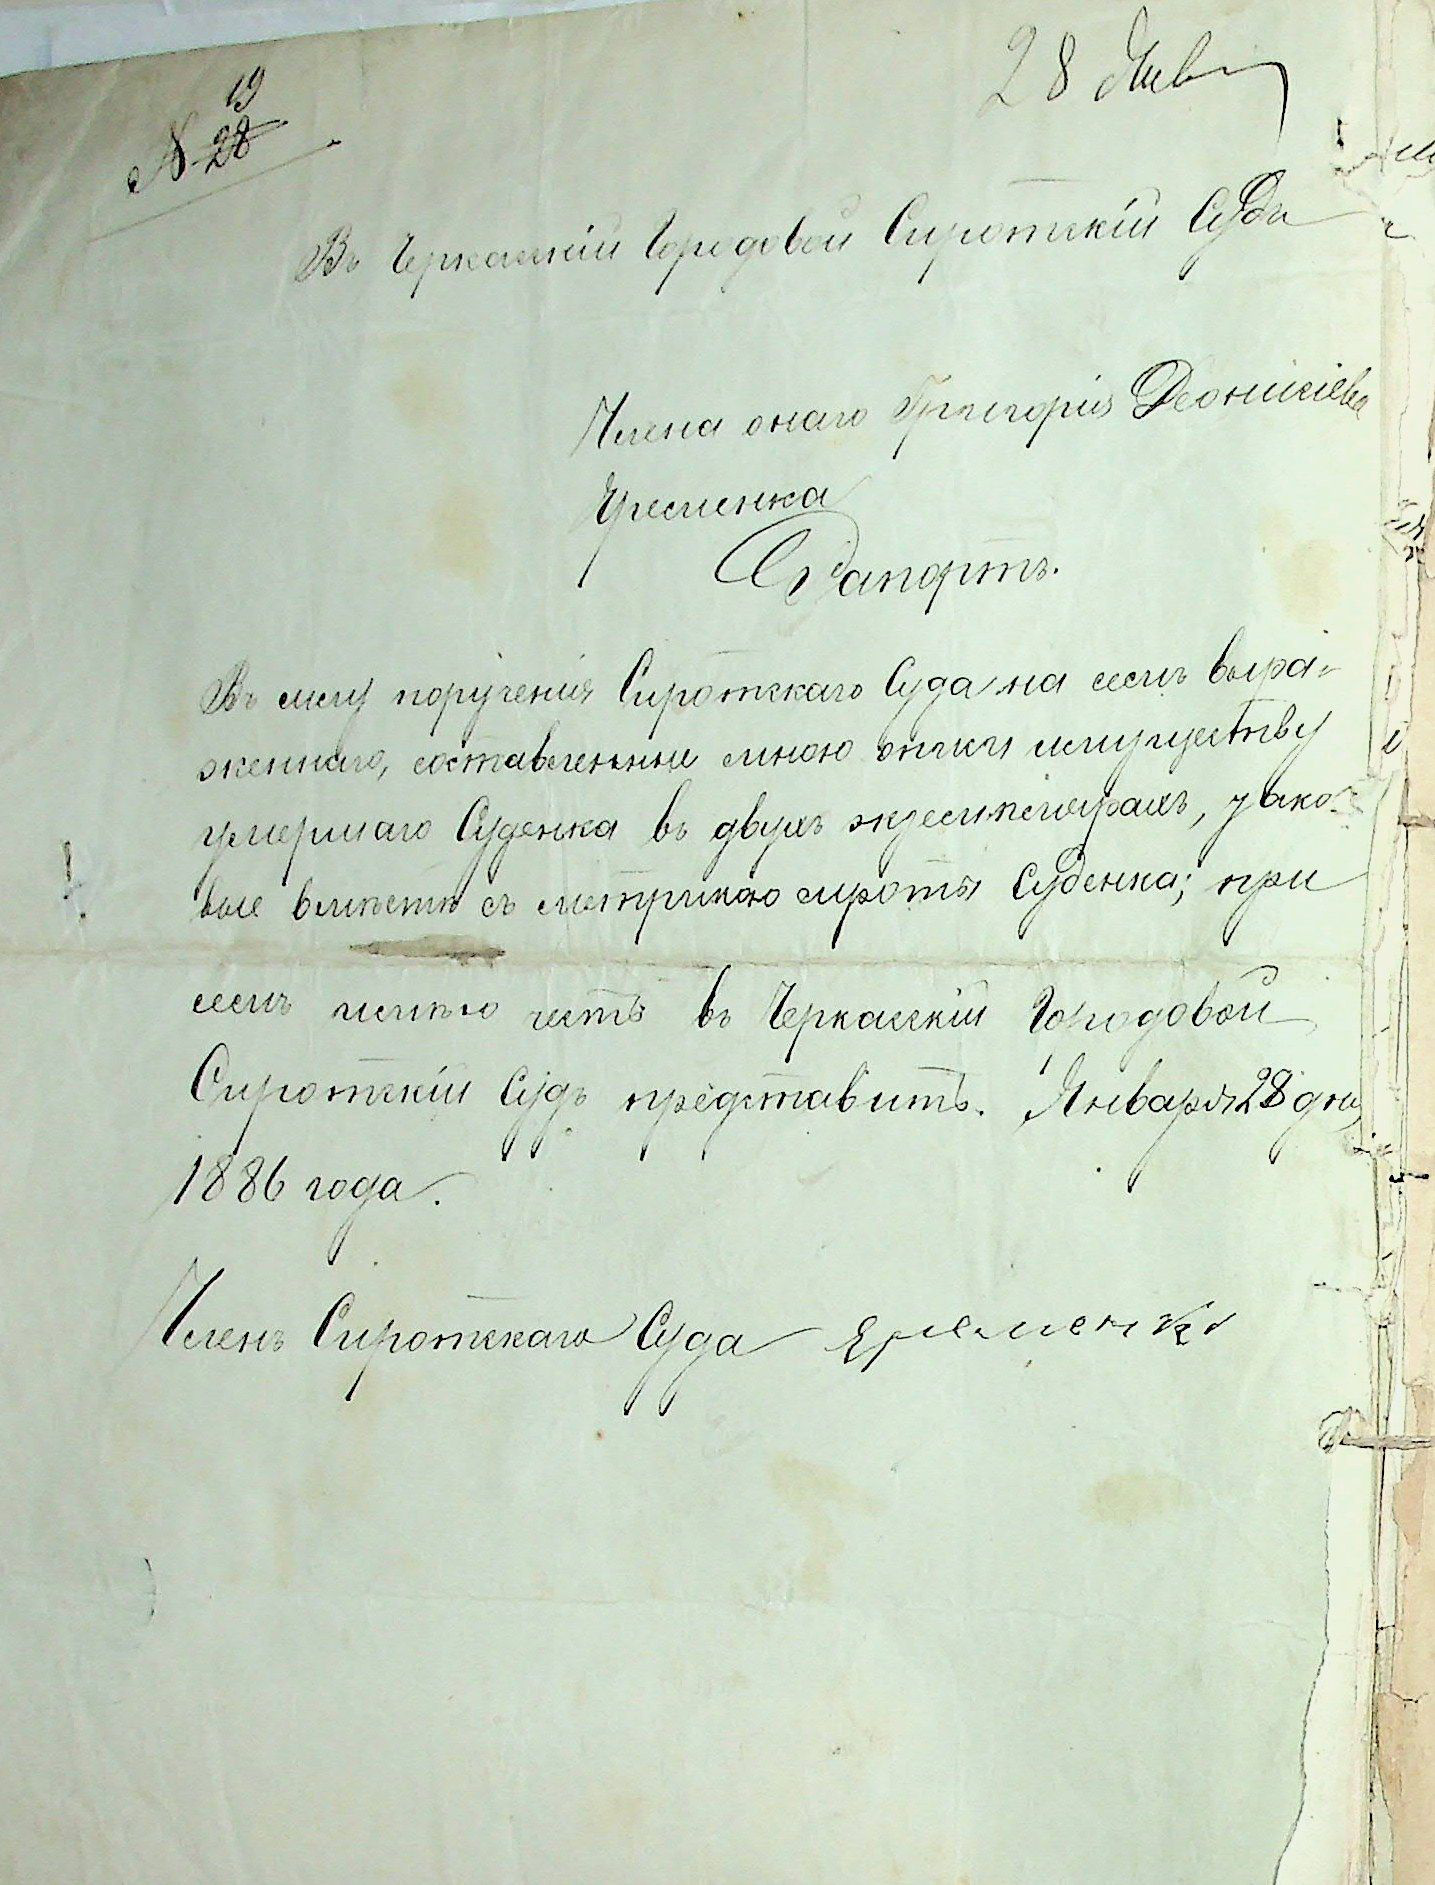 19
№ 28
28 Янв
Въ Черкаскій Городовой Сиротскій Судъ
Члена онаго Григорія Деонисіева
Яременка
Рапортъ.
Въ силу порученія Сиротскаго Суда на семъ выра-
женнаго, составленныи мною описи имуществу
умершаго Суденка въ двухъ экземплярахъ, како-
вые вместе съ метрикою сироты Суденка; при
семъ имѣю честь въ Черкаскій Городовой
Сиротскій Судъ представить. Января 28 дня
1886 года.
Членъ Сиротскаго Суда Яременко